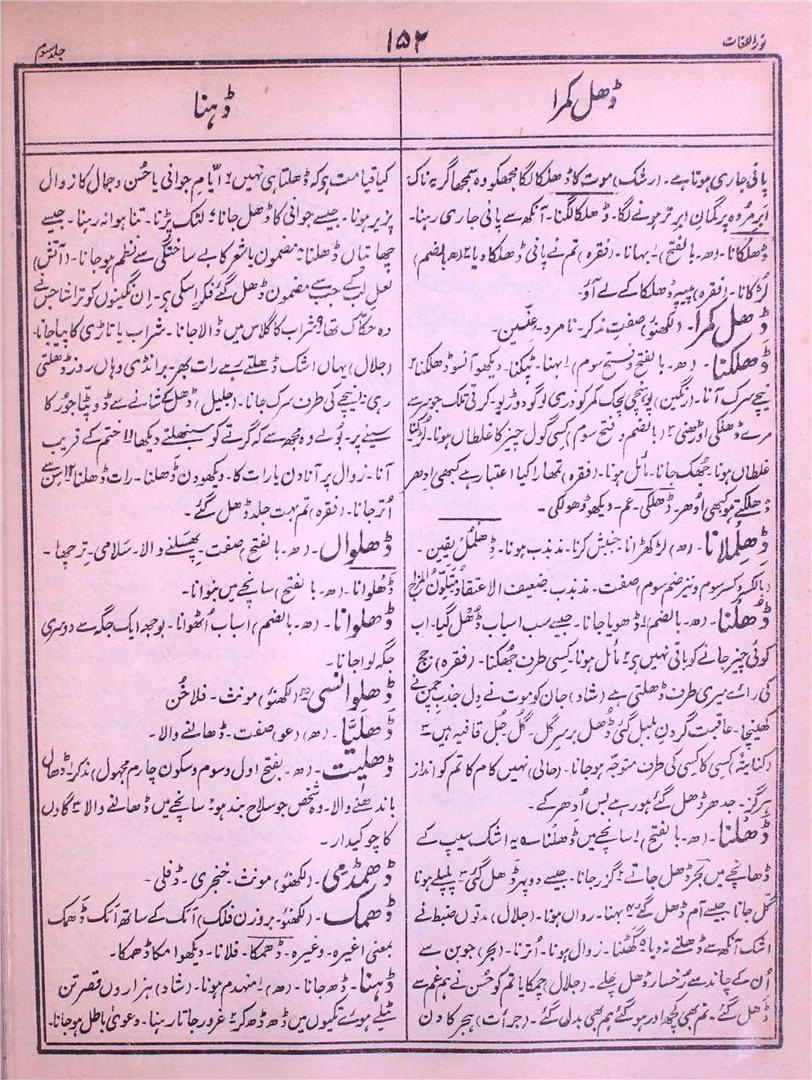 نور اللغات
۱۵۲
جلد سوم
ڈھل کمرا
ڈہنا
پانی جاری ہوتا ہے۔ (رشک) موت کا ڈھلکا لگا مجھکو وہ سمجھا گریہ ناک
ابرِ مُردہ پر گمانِ ابرِ تر ہونے لگا۔ ڈھلکا لگنا۔ آنکھ سے پانی جاری رہنا۔
ڈھلکانا۔ (ھ۔ بالفتح) ۱۔ بہانا۔ (فقرہ) تم نے پانی ڈھلکا دیا ۲ (ھ بالضم)
لڑکانا۔ (فقرہ) پیپہ ڈھلکا کے لے آؤ۔
ڈھل کمرا۔ (لکھنؤ) صفت مذکر۔ نامرد۔ عِنّین۔
ڈھلکنا۔ (ھ۔ بالفتح و فتح سوم) ۱۔ بہنا۔ ٹپکنا۔ دیکھو آنسو ڈھلکنا ۲
نیچے سرک آنا۔ (رنگین) پونہچی لچک کمر کو ذری لوگو دوڑیو۔ کرتی تلک جو سر سے
مرے ڈھلکی اوڑھنی ۳ (بالضم و فتح سوم) کسی گول چیز کا غلطاں ہونا۔ لڑکنا
غلطاں ہونا۔ جُھک جانا۔ مائل ہونا۔ (فقرہ) تمھارا کیا اعتبار ہے کبھی ادھر
ڈھلکتے ہو کبھی اُودھر۔ ڈھلکی۔ عم۔ دیکھو ڈھولکی۔
ڈھِلمِلانا۔ (ھ) لڑکھڑانا جنبش کرنا۔ مذبذب ہونا۔ ڈھلمُل یقین۔
(بالکسر و کسر سوم و نیز ضم سوم) صفت۔ مذبذب ضعیف الاعتقاد متلوّن المزاج
ڈُھلنا۔ (ھ۔ بالضم) ۱۔ ڈھویا جانا۔ جیسے سب اسباب ڈُھل گیا۔ اب
کوئی چیز جانے کو باقی نہیں ہے ۲ مائل ہونا۔ کسی طرف جُھکنا۔ (فقرہ) جج
کی رائے میری طرف ڈھلتی ہے (شاد) جان کو موت نے دل جذبِ چمن نے
کھینچا۔ عاقبت گردنِ بلبل گئی ڈُھل بر سرِ گل۔ گُل جُل قافیہ ہیں ۳
(کنایۃً) کسی کا کسی کی طرف متوجّہ ہو جانا۔ (حالی) نہیں کام کا تم کو انداز
ہرگز۔ جدھر ڈھل گئے ہو رہے بس اُدھر کے۔
ڈَھلنا۔ (ھ۔ بالفتح) ۱ سانچے میں ڈھلنا ے یہ اشک سیپ کے
ڈھانچے میں بحر ڈھل جاتے ۲ گزر جانا۔ جیسے دوپہر ڈھل گئی ۳ پلپلے ہونا
گل جانا جیسے آم ڈھل گئے ۴ بہنا۔ رواں ہونا۔ (جلال) مدتوں ضبط نے
اشک آنکھ سے ڈھلنے نہ دیا ۵ گھٹنا۔ زوال ہونا۔ اُترنا۔ (بحر) جوبن سے
اُن کے چاند سے رُخسار ڈھل چلے۔ (جلال) چمکایا تم کو حُسن نے ہم غم سے
ڈھل گئے۔ تم بھی کچھ اور ہو گئے ہم بھی بدل گئے۔ (جرأت) ہجر کا دن
کیا قیامت ہے کہ ڈھلتا ہی نہیں ۶ ایّام جوانی یا حُسن و جمال کا زوال
پزیر ہونا۔ جیسے جوانی کا ڈھل جانا ۷ لٹک پڑنا۔ تنا ہوا نہ رہنا۔ جیسے
چھاتیاں ڈھلنا ۸ مضمون یا شعر کا بے ساختگی سے نظم ہو جانا۔ (آتش)
لعلِ لب کے جب سے مضمون ڈھل گئے فکر اسکی ہے۔ اِن نگینوں کو تراشا جس نے
وہ حکاک تھا ۹ شراب کا گلاس میں ڈالا جانا۔ شراب یا تاڑی کا پیا جانا۔
(جلال) یہاں اشک ڈھلتے رہے رات بھر۔ برانڈی وہاں روز ڈھلتی
رہی ۱۰ نیچے کی طرف سرک جانا۔ (جلیل) ڈھل گیا شانے سے دوپٹا جو رُکا
سینے پر۔ بولے وہ مجھ سے کہ گرتے کو سنبھلتے دیکھا ۱۱ ختم کے قریب
آنا۔ زوال پر آنا دن یا رات کا۔ دیکھو دن ڈَھلنا۔ رات ڈھلنا ۱۲ سِن سے
اُتر جانا۔ (فقرہ) تم بہت جلد ڈھل گئے۔
ڈھلواں۔ (ھ۔ بالفتح) صفت۔ پھسلنے والا۔ سلامی۔ ترچھا۔
ڈھلوانا۔ (ھ۔ بالفتح) سانچے میں ہوانا۔
ڈُھلوانا۔ (ھ۔ بالضم) اسباب اُٹھوانا۔ بوجھ ایک جگہ سے دوسری
جگہ لوا جانا۔
ڈھلوانسی (لکھنؤ) مونث۔ فلاخُن
ڈھلیّا۔ (ھ) (عو) صفت۔ ڈھالنے والا۔
ڈھلیت۔ (ھ۔ بفتح اول و سوم و سکون چارم مجہول) مذکر ۱ ڈھال
باندھنے والا۔ وہ شخص جو سلاح بند ہو ۲ سانچے میں ڈھالنے والا ۳ گاؤں
کا چوکیدار۔
ڈھمڈمی۔ (لکھنؤ) مونث۔ خنجری۔ ڈفلی۔
ڈَھمک۔ (لکھنؤ۔ بروزن فلک) اَنک کے ساتھ اَنک ڈَھمک
بمعنی اغیرہ۔ وغیرہ۔ ڈھمکا۔ فلانا۔ دیکھو امکا ڈھمکا۔
ڈَہنا۔ ڈھ جانا۔ (ھ) ۱ منہدم ہونا۔ (شاد) ہزاروں قصر تن
ٹیلے ہوئے تکیوں میں ڈھ ڈھ کر ۲ غرور جاتا رہنا۔ دعویٰ باطل ہو جانا۔